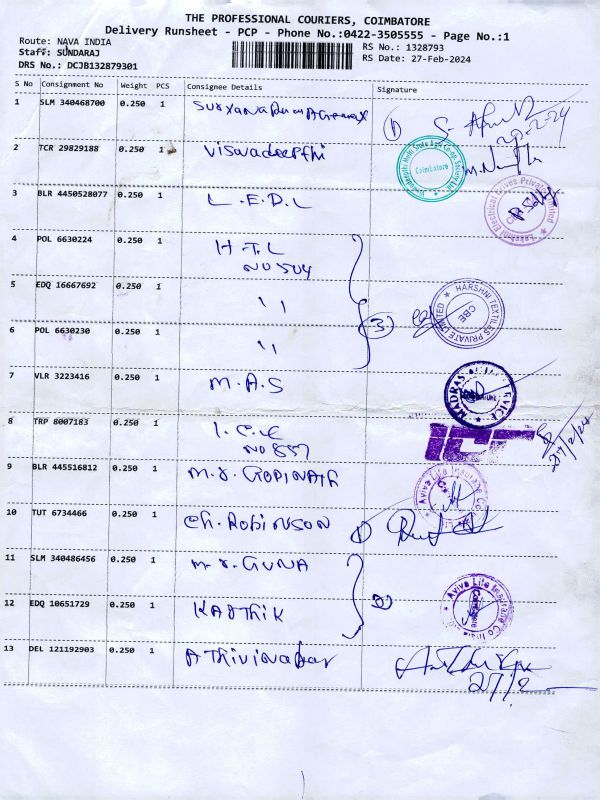 THE PROFESSIONAL COURIERS, COIMBATORE
Delivery Runsheet - PCP - Phone No.:0422-3505555 - Page No.:1
Route: NAVA INDIA
RS No.: 1328793
Staff: SUNDARAJ
RS Date: 27-Feb-2024
DRS No.: DCJB132879301
S No Consignment No Weight PCS Consignee Details Signature
1 SLM 340468700 0.250 1
2 TCR 29829188 0.250 1 Viswadeepthi
Coimbatore
3 BLR 4450528077 0.250 1 L.E.D.L
Lakshmi Electrical Drives Private Limited
4 POL 6630224 0.250 1 H.T.L
NO 504
5 EDQ 16667692 0.250 1 ''
3
HARSHNI TEXTILES PRIVATE LIMITED
CBE
6 POL 6630230 0.250 1 ''
7 VLR 3223416 0.250 1 M.A.S
MADRAS
8 TRP 8007183 0.250 1 I.C.E
NO 857
27/2/24
9 BLR 445516812 0.250 1 M.r. GOPINATH
Aviva Life Insurance Co
10 TUT 6734466 0.250 1 Ch. Robinson
11 SLM 340486456 0.250 1 M.r. GUNA
12 EDQ 10651729 0.250 1 KARTHIK
Aviva Life Insurance Co India
Coimbatore
13 DEL 121192903 0.250 1
27/2